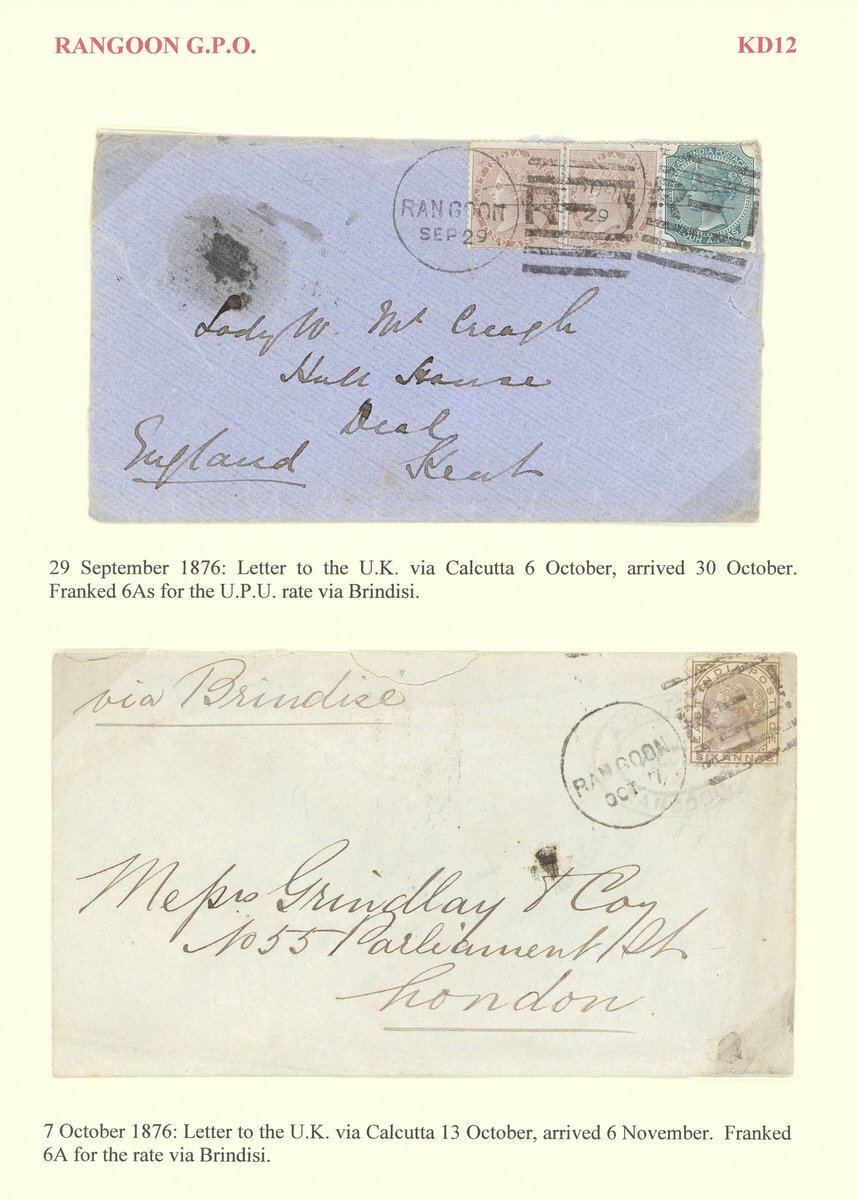 RANGOON G.P.O. KD12
RANGOON
SEP 29
29
FOUR ANNAS
Lady W. Mc Creagh
Hull House
Deal
England Kent
29 September 1876: Letter to the U.K. via Calcutta 6 October, arrived 30 October.
Franked 6As for the U.P.U. rate via Brindisi.
via Brindisi
RANGOON
OCT. 7
SIX ANNAS
Messrs Grindlay & Coy
No 55 Parliament St
London
7 October 1876: Letter to the U.K. via Calcutta 13 October, arrived 6 November. Franked
6A for the rate via Brindisi.